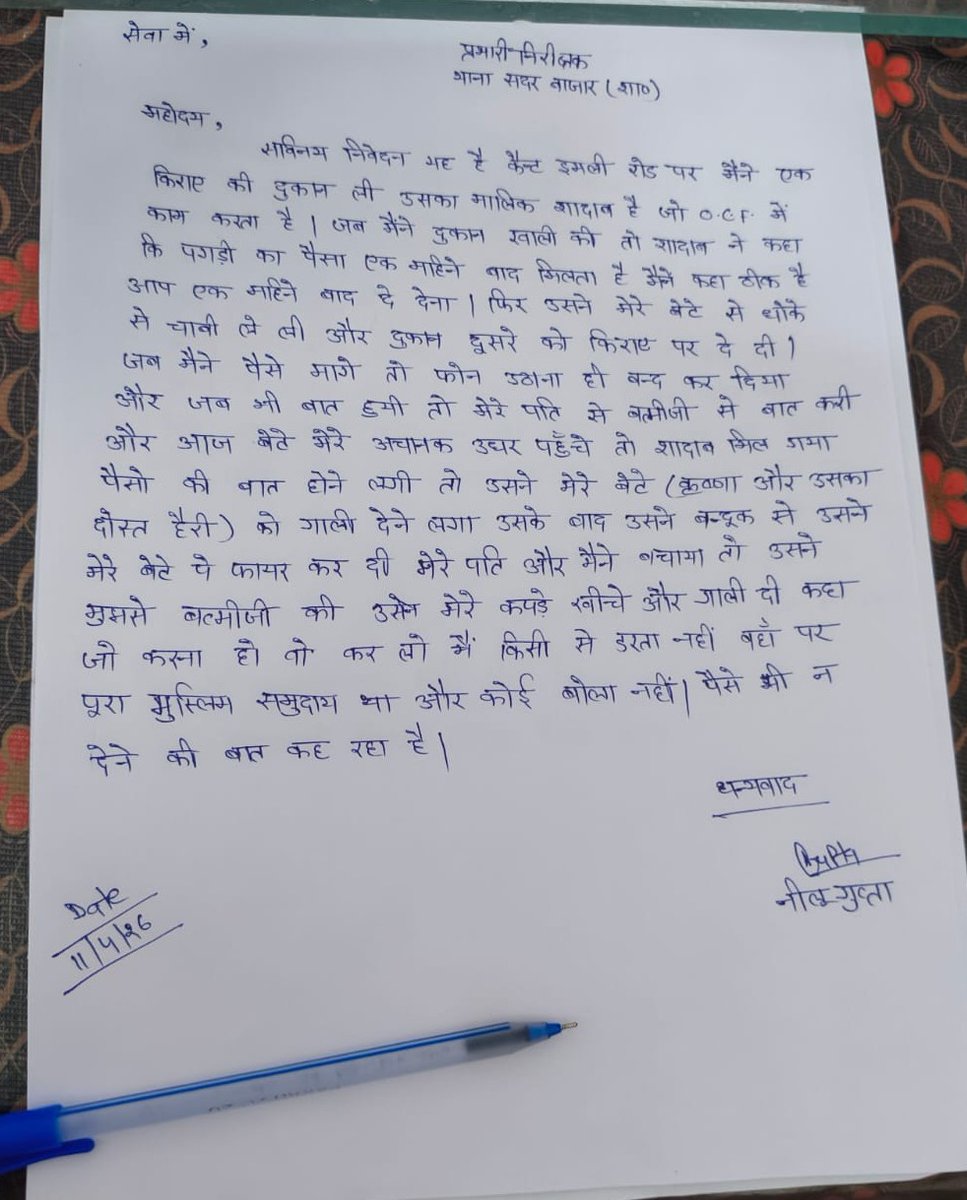 सेवा में,
प्रभारी निरीक्षक
थाना सदर बाजार (शा०)
महोदय,
सविनय निवेदन यह है कैन्ट इमली रोड पर मैने एक
किराए की दुकान ली उसका मालिक शादाब है जो O.C.F. में
काम करता है। जब मैंने दुकान खाली की तो शादाब ने कहा
कि पगड़ी का पैसा एक महिने बाद मिलता है मैंने कहा ठीक है
आप एक महिने बाद दे देना। फिर उसने मेरे बेटे से धोके
से चाबी ले ली और दुकान दूसरे को किराए पर दे दी।
जब मैने पैसे मागे तो फोन उठाना ही बन्द कर दिया
और जब भी बात हुयी तो मेरे पति से बत्मीजी से बात करी
और आज बेटे मेरे अचानक उधर पहुँचे तो शादाब मिल गया
पैसो की बात होने लगी तो उसने मेरे बेटे (कृष्णा और उसका
दोस्त हैरी) को गाली देने लगा उसके बाद उसने बन्दूक से उसने
मेरे बेटे पे फायर कर दी मेरे पति और मैने बचाया तो उसने
मुझसे बत्मीजी की उसने मेरे कपड़े खीचे और गाली दी कहा
जो करना हो वो कर लो मैं किसी से डरता नहीं वहाँ पर
पूरा मुस्लिम समुदाय था और कोई बोला नहीं। पैसे भी न
देने की बात कह रहा है।
धन्यवाद
Gupta
नीलू गुप्ता
Date
11/4/26